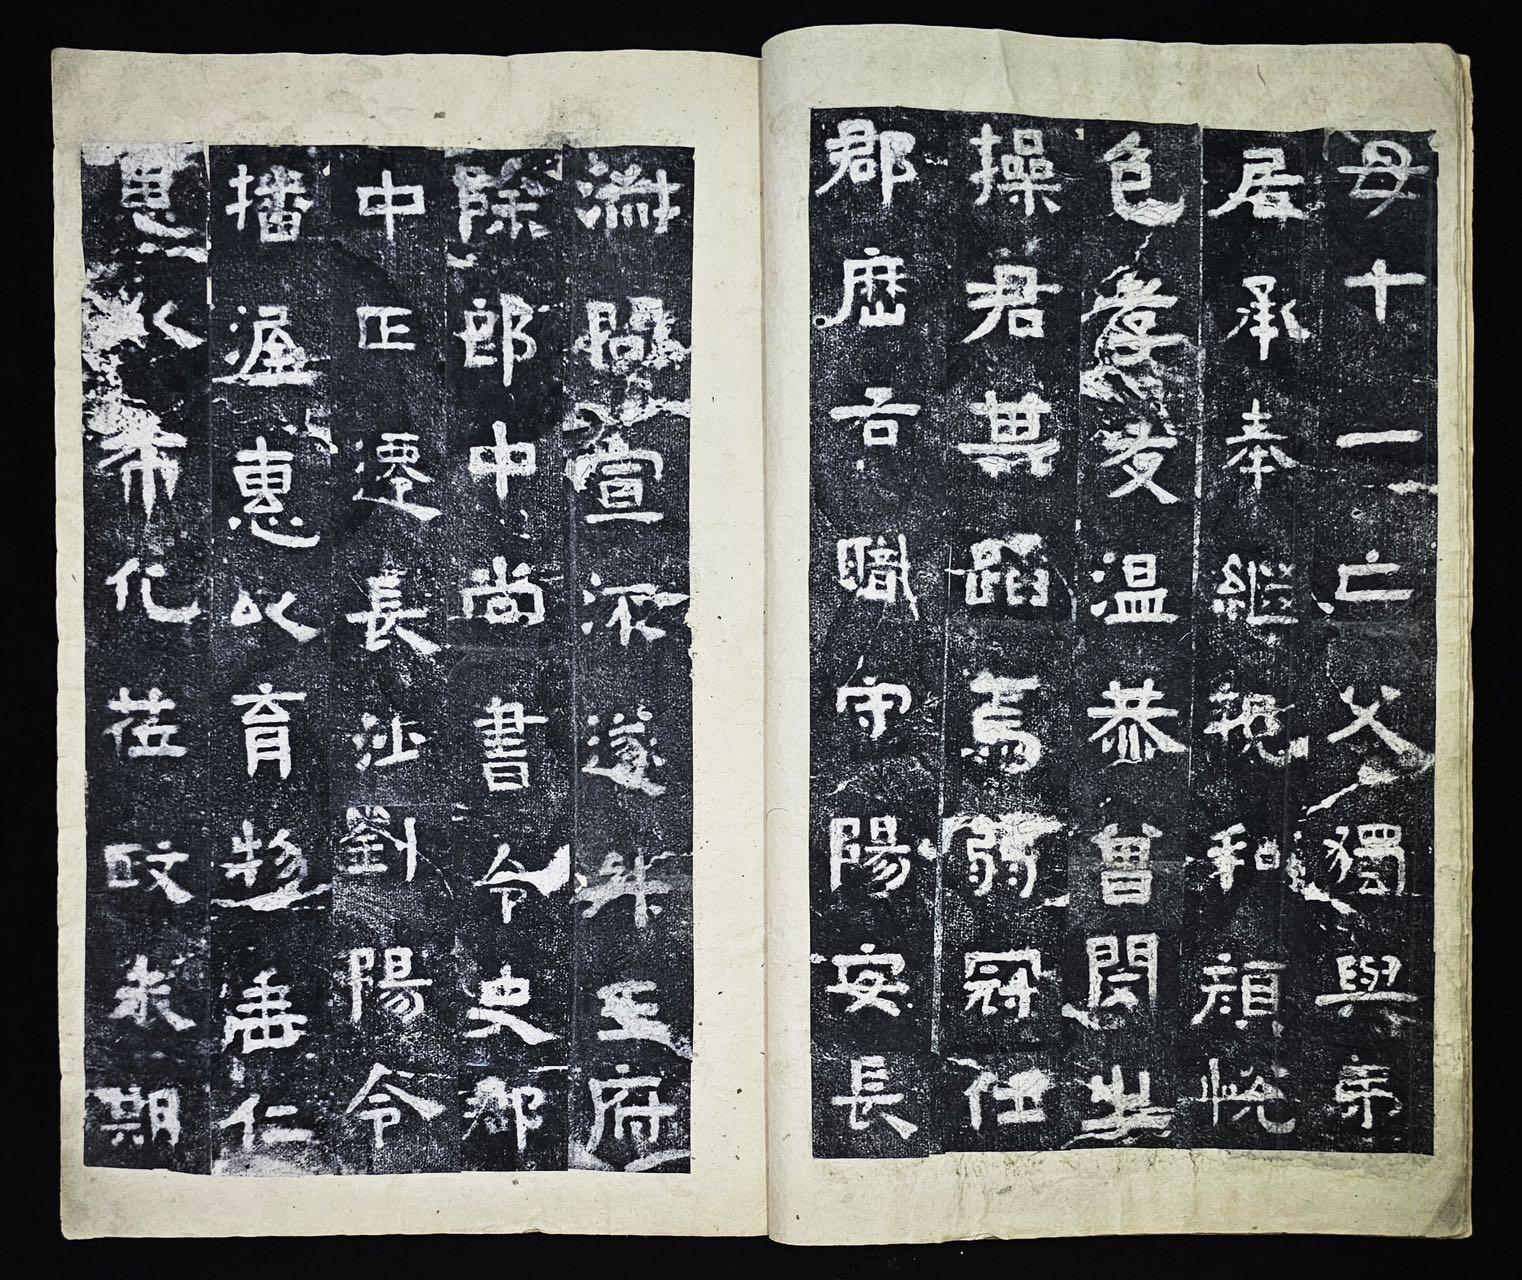 母十一亡父獨與弟
居承奉繼親和顏悅
色孝友温恭曾閔之
操君其蹈焉弱冠仕
郡歷右職守陽安長
聞宣遂升王府
除郎中尚書令史郡
中正遷長沙劉陽令
播渥惠以育物垂仁
恩以布化莅政未期